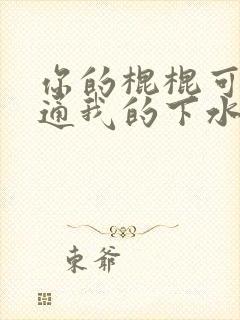 你的棍棍可
通我的下水
東爺